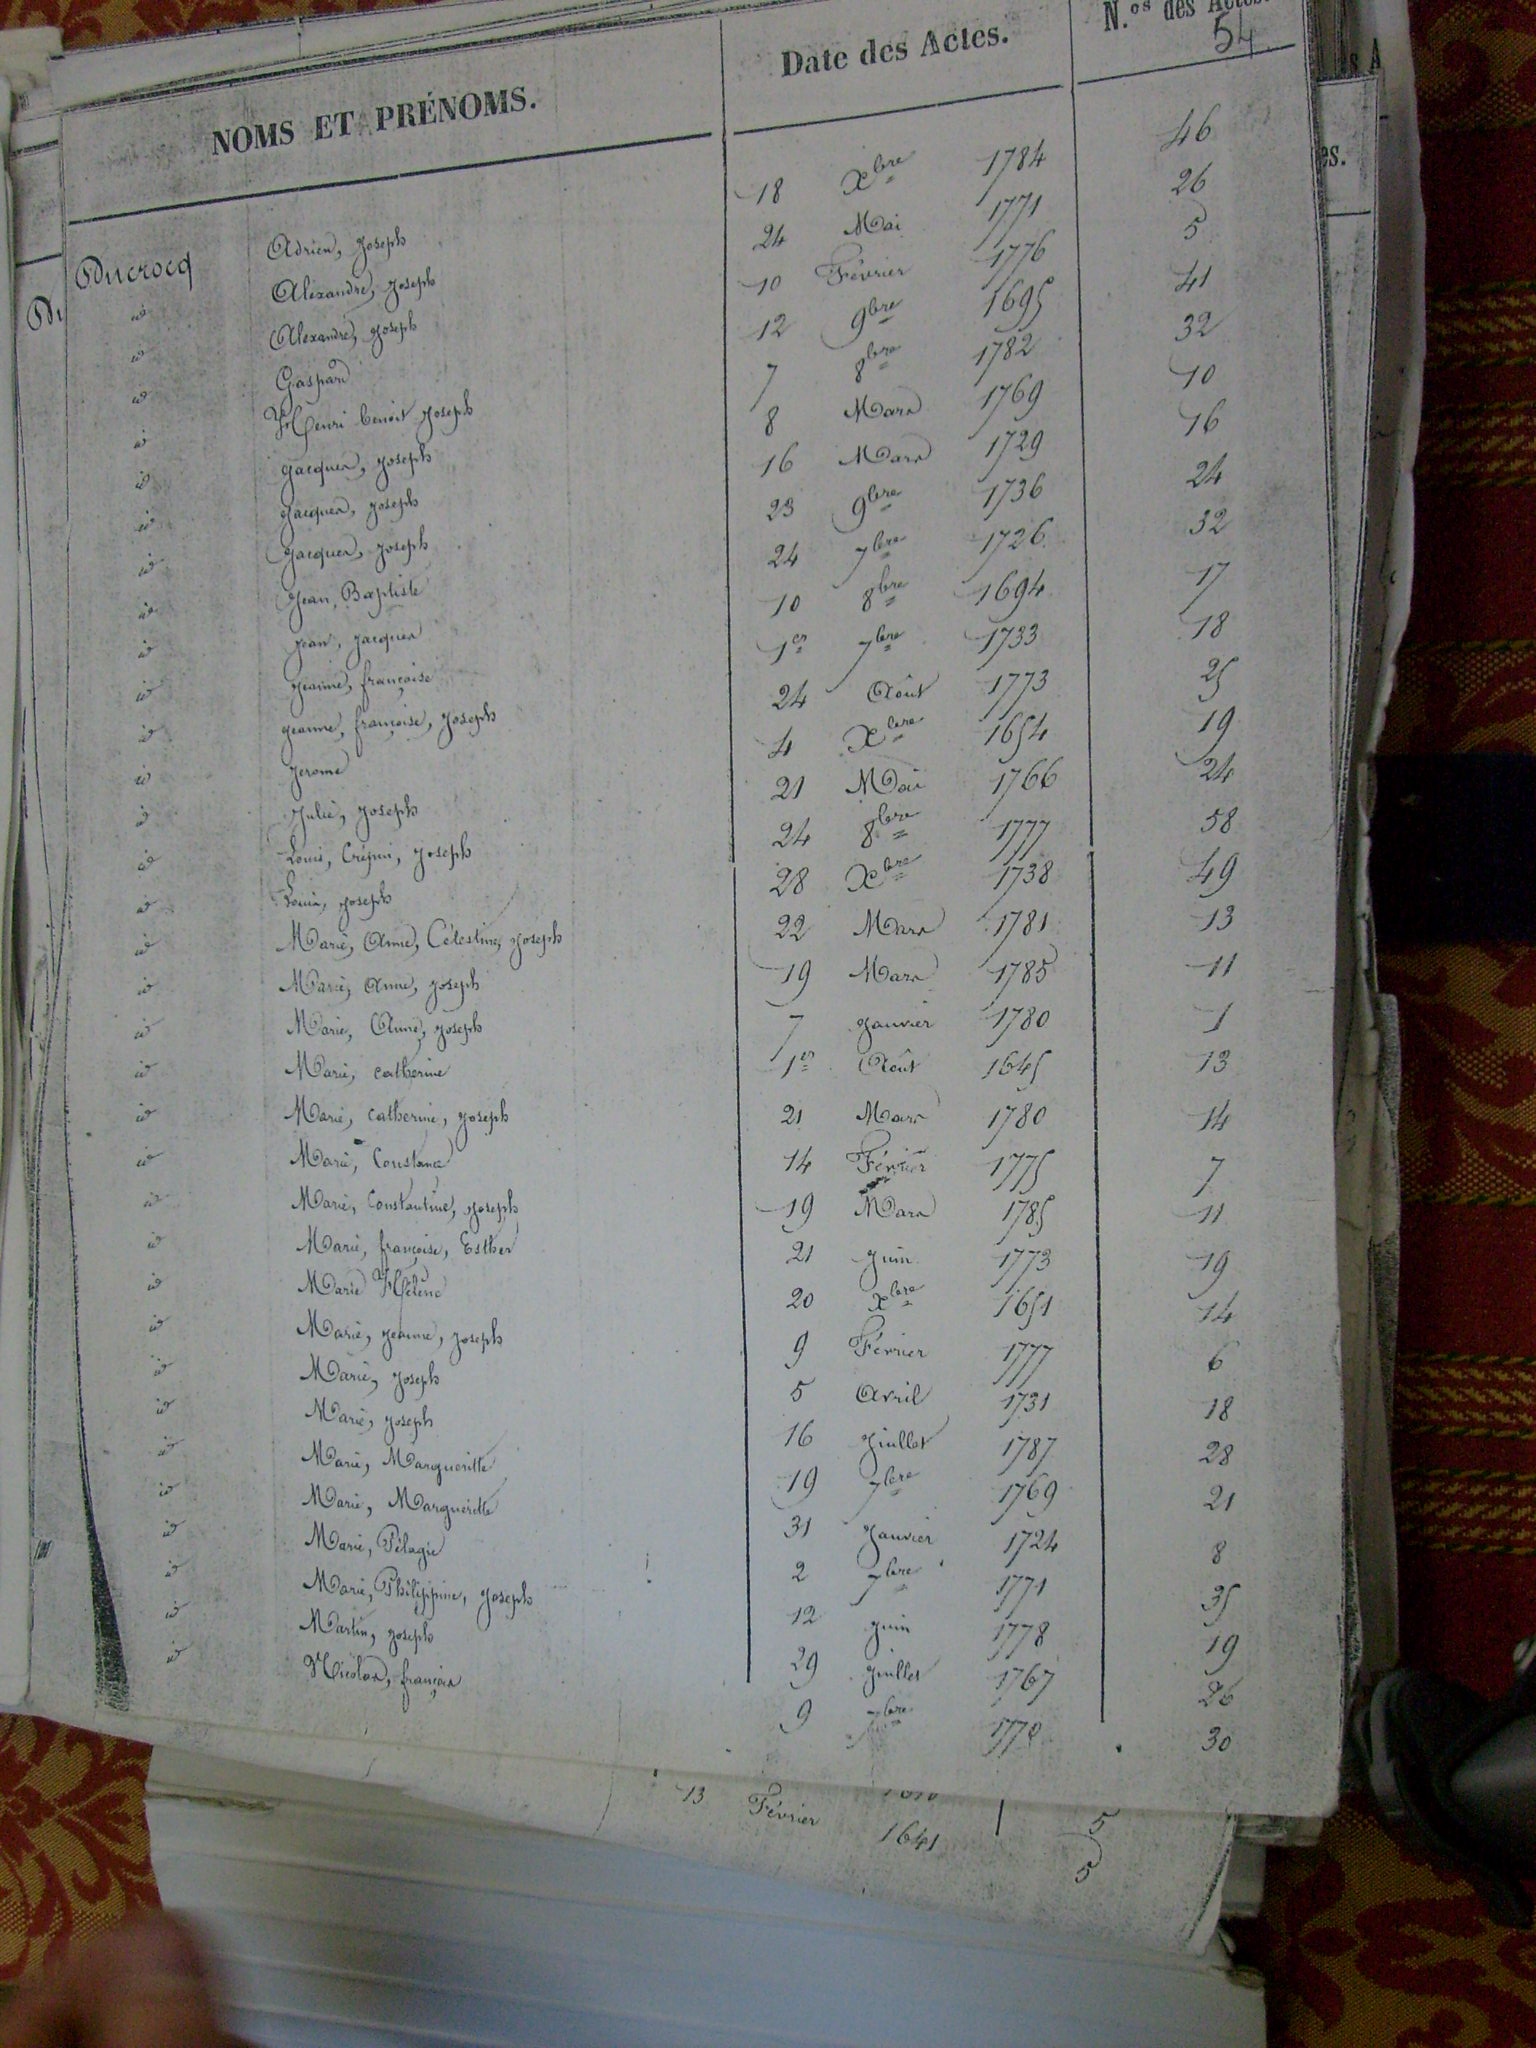 NOMS ET PRÉNOMS. Date des Actes. N.os des Actes.
54
Ducrocq Adrien, Joseph 18 Xbre 1784 46
id Alexandre, Joseph 24 Mai 1771 26
id Alexandre, Joseph 10 Février 1776 5
id Gaspard 12 9bre 1695 41
id Henri benoit Joseph 7 8bre 1782 32
id Jacques, Joseph 8 Mars 1769 10
id Jacques, Joseph 16 Mars 1729 16
id Jacques, Joseph 23 9bre 1736 24
id Jean, Baptiste 24 7bre 1726 32
id Jean, Jacques 10 8bre 1694 17
id Jeanne, françoise 1er 7bre 1733 18
id Jeanne, françoise, Joseph 24 Août 1773 25
id Jerome 4 Xbre 1654 19
id Julie, Joseph 21 Mai 1766 24
id Louis, Crépin, Joseph 24 8bre 1777 58
id Louis, Joseph 28 Xbre 1738 49
id Marie, Anne, Célestine, Joseph 22 Mars 1781 13
id Marie, Anne, Joseph 19 Mars 1785 11
id Marie, Anne, Joseph 7 Janvier 1780 1
id Marie, catherine 1er Août 1645 13
id Marie, catherine, Joseph 21 Mars 1780 14
id Marie, Constance 14 Février 1775 7
id Marie, Constantine, Joseph 19 Mars 1785 11
id Marie, françoise, Esther 21 Juin 1773 19
id Marie Hélène 20 Xbre 1651 14
id Marie, Jeanne, Joseph 9 Février 1777 6
id Marie, Joseph 5 Avril 1731 18
id Marie, Joseph 16 Juillet 1787 28
id Marie, Margueritte 19 7bre 1769 21
id Marie, Margueritte 31 Janvier 1724 8
id Marie, Pélagie 2 7bre 1771 35
id Marie, Philippine, Joseph 12 Juin 1778 19
id Martin, Joseph 29 Juillet 1767 26
id Nicolas, françois 9 7bre 1770 30
13 Février 1641 5
5